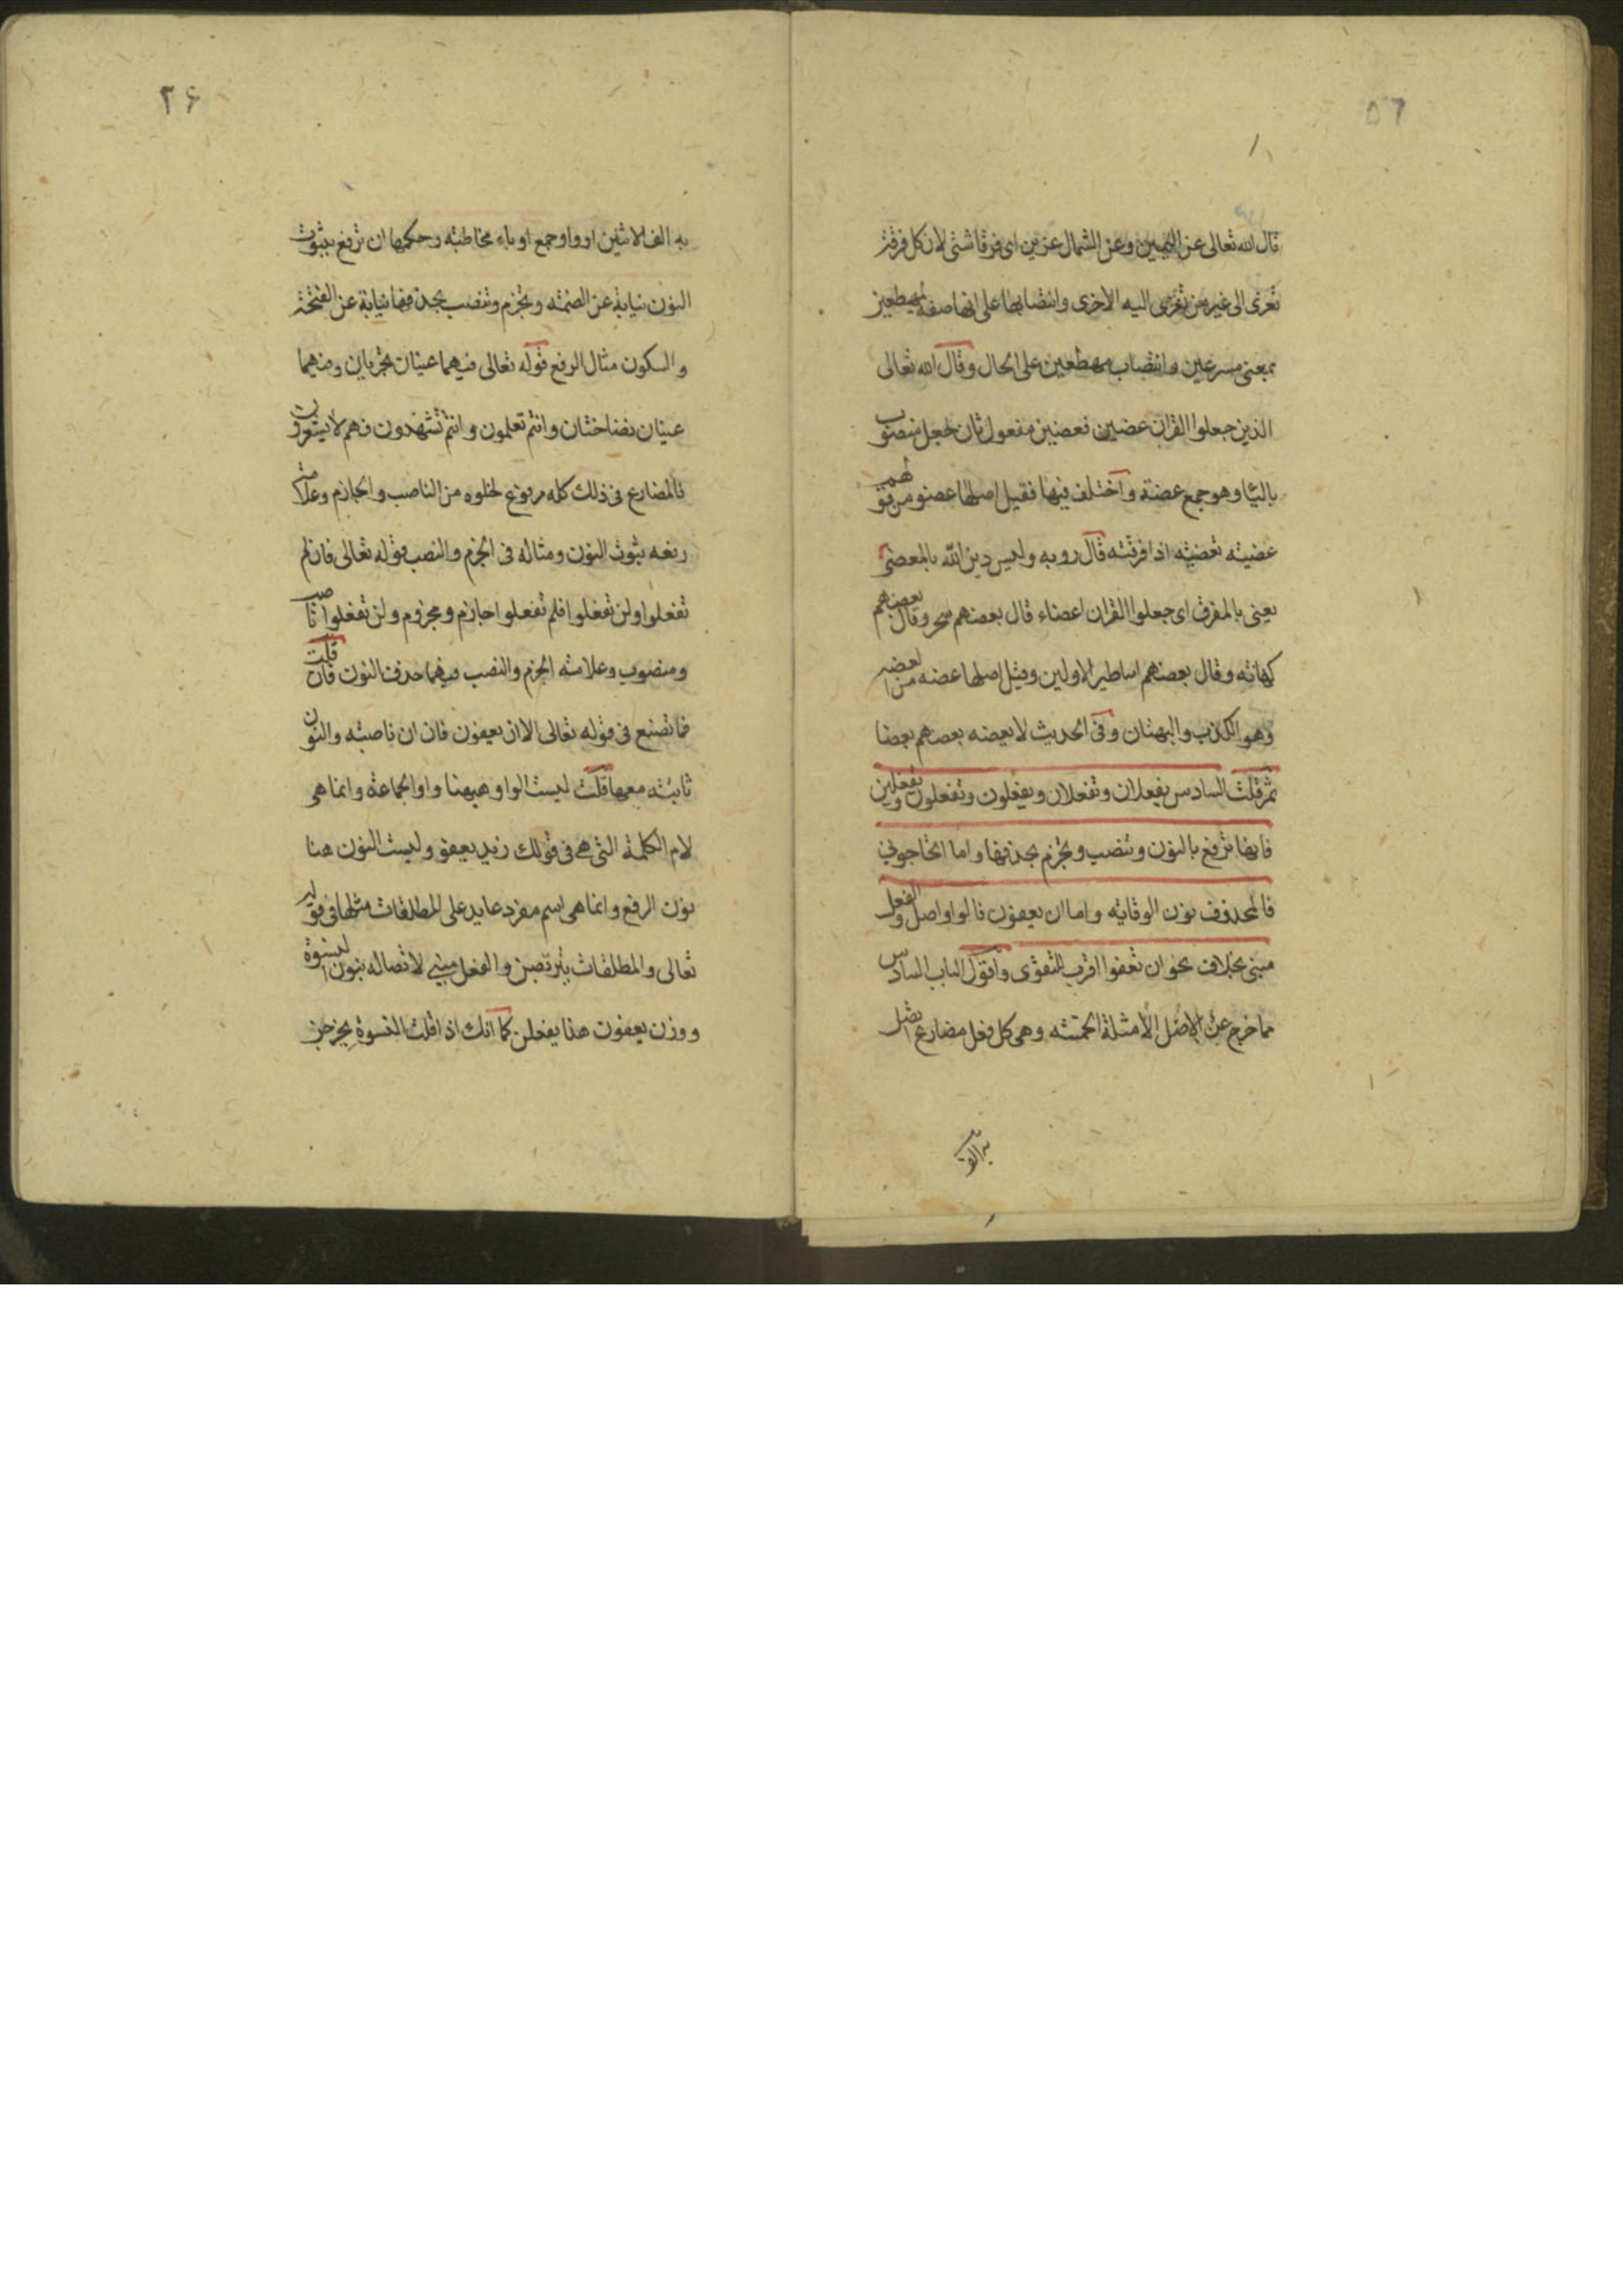 ٥٦
قال الله تعالى عن اليمين وعن الشمال عزين اى فرقا شتى لان كل فرقة
تعزى الى غير من تعزى اليه الاخرى وانتصابها على انها صفة لمهطعين
بمعنى مسرعين وانتصاب مهطعين على الحال وقال الله تعالى
الذين جعلوا القران عضين فعضين مفعول ثان لجعل منصوب
بالياء وهو جمع عضة واختلف فيها فقيل اصلها عضو من قولهم
عضيته تعضيته اذا فرقته قال روبه وليس دين الله بالمعضى
يعنى بالمفرق اى جعلوا القران اعضاء قال بعضهم سحر وقال بعضهم
كهانه وقال بعضهم اساطير الاولين وقيل اصلها عضه من العضه
وهو الكذب والبهتان وفى الحديث لا يعضه بعضهم بعضا
ثم قلت السادس يفعلان وتفعلان ويفعلون وتفعلون وتفعلين
فانها ترفع بالنون وتنصب وتجزم بحذفها واما اتحاجونى
فالمحذوف نون الوقايه واما ان يعفون فالواو اصل والفعل
مبنى بخلاف نحو ان تعفوا اقرب للتقوى واقول الباب السادس
مما خرج عن الاصل الأمثلة الخمسه وهى كل فعل مضارع اتصل
به الف
٢۶
به الف الاثنين او واو جمع او ياء مخاطبه وحكمها ان ترفع بثبوت
النون نيابة عن الضمه وتجزم وتنصب بحذفها نيابة عن الفتحة
والسكون مثال الرفع قوله تعالى فيهما عينان تجريان وفيهما
عينان نضاختان وانتم تعلمون وانتم تشهدون فهم لا يشعرون
فالمضارع فى ذلك كله مرفوع لخلوه من الناصب والجازم وعلامة
رفعه ثبوت النون ومثاله فى الجزم والنصب قوله تعالى فان لم
تفعلوا ولن تفعلوا فلم تفعلوا جازم ومجزوم ولن تفعلوا ناصب
ومنصوب وعلامته الجزم والنصب فيهما حذف النون فان قلت
فما تصنع فى قوله تعالى الا ان يعفون فان ان ناصبه والنون
ثابته معها قلت ليست الواو هيهنا واو الجماعة وانما هى
لام الكلمة التى هى فى قولك زيد يعفو وليست النون هنا
نون الرفع وانما هى اسم مفرد عايد على المطلقات مثلها فى قوله
تعالى والمطلقات يتربصن والفعل مبنى لاتصاله بنون النسوة
ووزن يعفون هنا يفعلن كما انك اذا قلت النسوة يخرجن